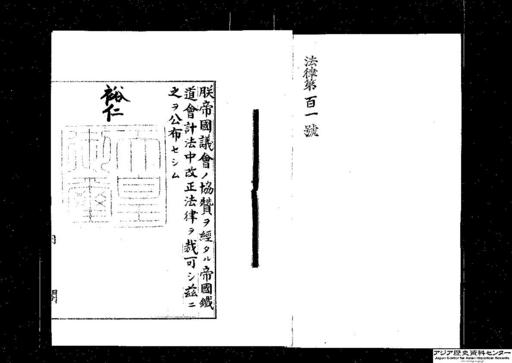 法律第百一號
朕帝國議會ノ協贊ヲ經タル帝國鐵
道會計法中改正法律ヲ裁可シ茲ニ
之ヲ公布セシム
裕仁
天皇
御璽
アジア歴史資料センター
Japan Center for Asian Historical Records